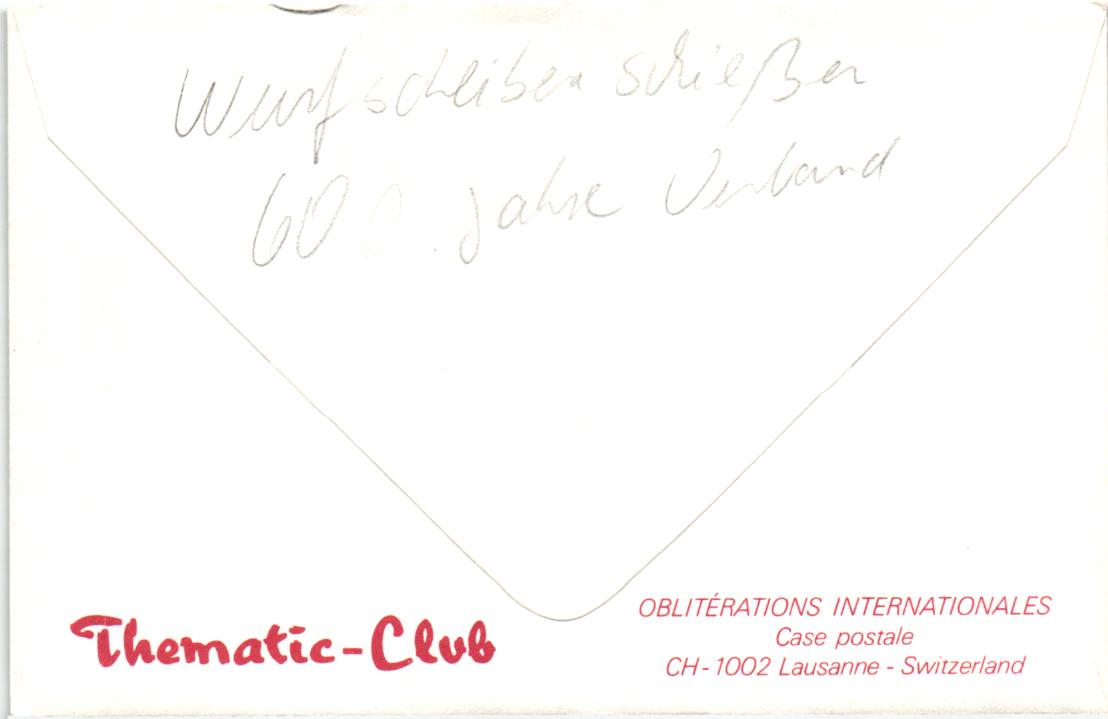 Wurfscheiben schießen
60 Jahre Verband
Thematic-Club
OBLITÉRATIONS INTERNATIONALES
Case postale
CH-1002 Lausanne - Switzerland